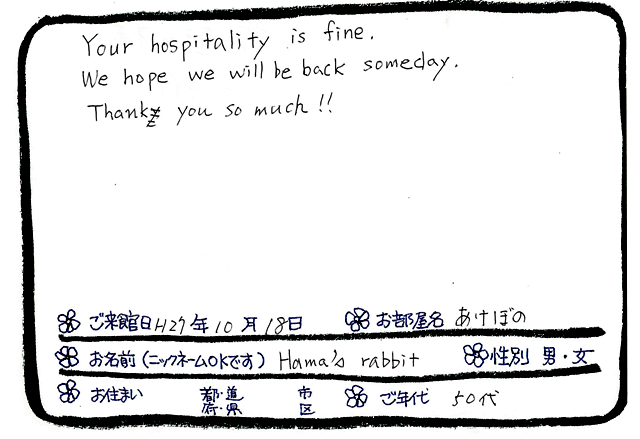 Your hospitality is fine.
We hope we will be back someday.
Thank you so much!!
ご来館日 H27年10月18日 お部屋名 あけぼの
お名前(ニックネームOKです) Hama's rabbit 性別 男・女
お住まい 都・道 市
府・県 区 ご年代 50代